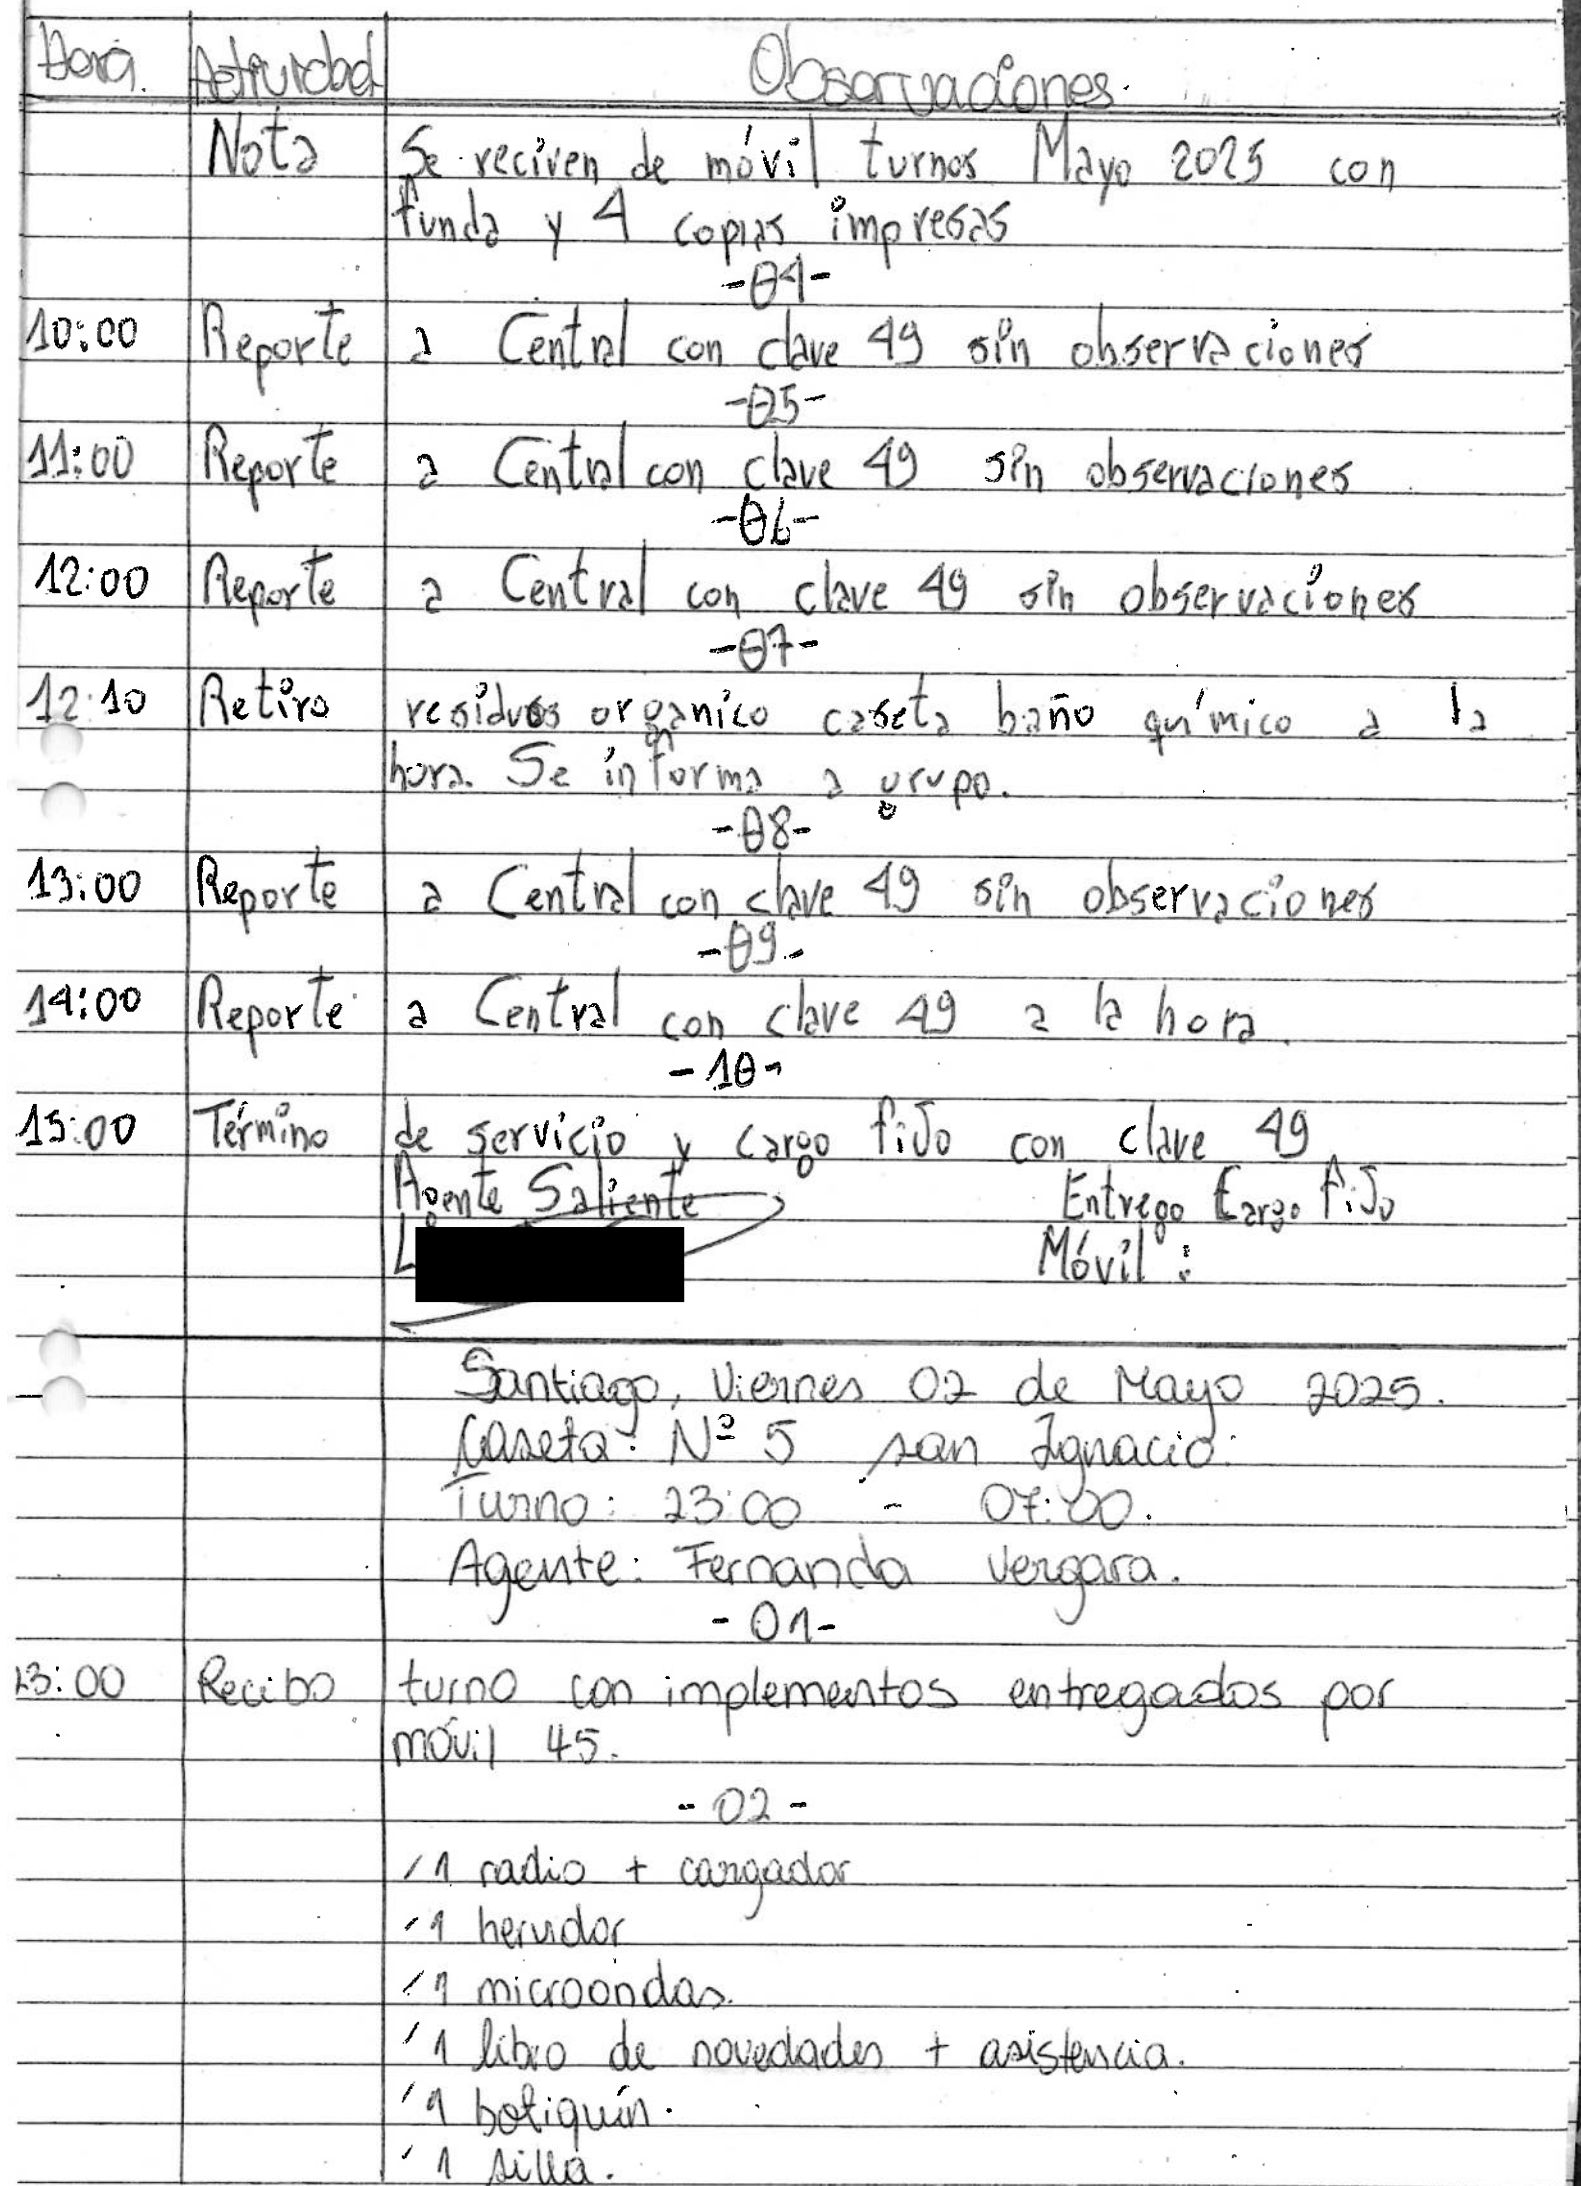 Hora. Actividad Observaciones.
Nota Se reciven de móvil turnos Mayo 2025 con
funda y 4 copias impresas
-04-
10:00 Reporte a Central con clave 49 sin observaciones
-05-
11:00 Reporte a Central con clave 49 sin observaciones
-06-
12:00 Reporte a Central con clave 49 sin observaciones
-07-
12:10 Retiro residuos organico caseta baño químico a la
hora. Se informa a grupo.
-08-
13:00 Reporte a Central con clave 49 sin observaciones
-09-
14:00 Reporte a Central con clave 49 a la hora.
-10-
15:00 Término de servicio y cargo fiJo con clave 49
Agente Saliente Entrego Cargo fiJo
Móvil:
Santiago, Viernes 02 de Mayo 2025.
Caseta: Nº 5 san Ignacio.
Turno: 23:00 - 07:00.
Agente: Fernanda Vergara.
-01-
23:00 Recibo turno con implementos entregados por
móvil 45.
-02-
/ 1 radio + cargador
/ 1 hervidor
/ 1 microondas.
/ 1 libro de novedades + asistencia.
/ 1 botiquín.
/ 1 silla.